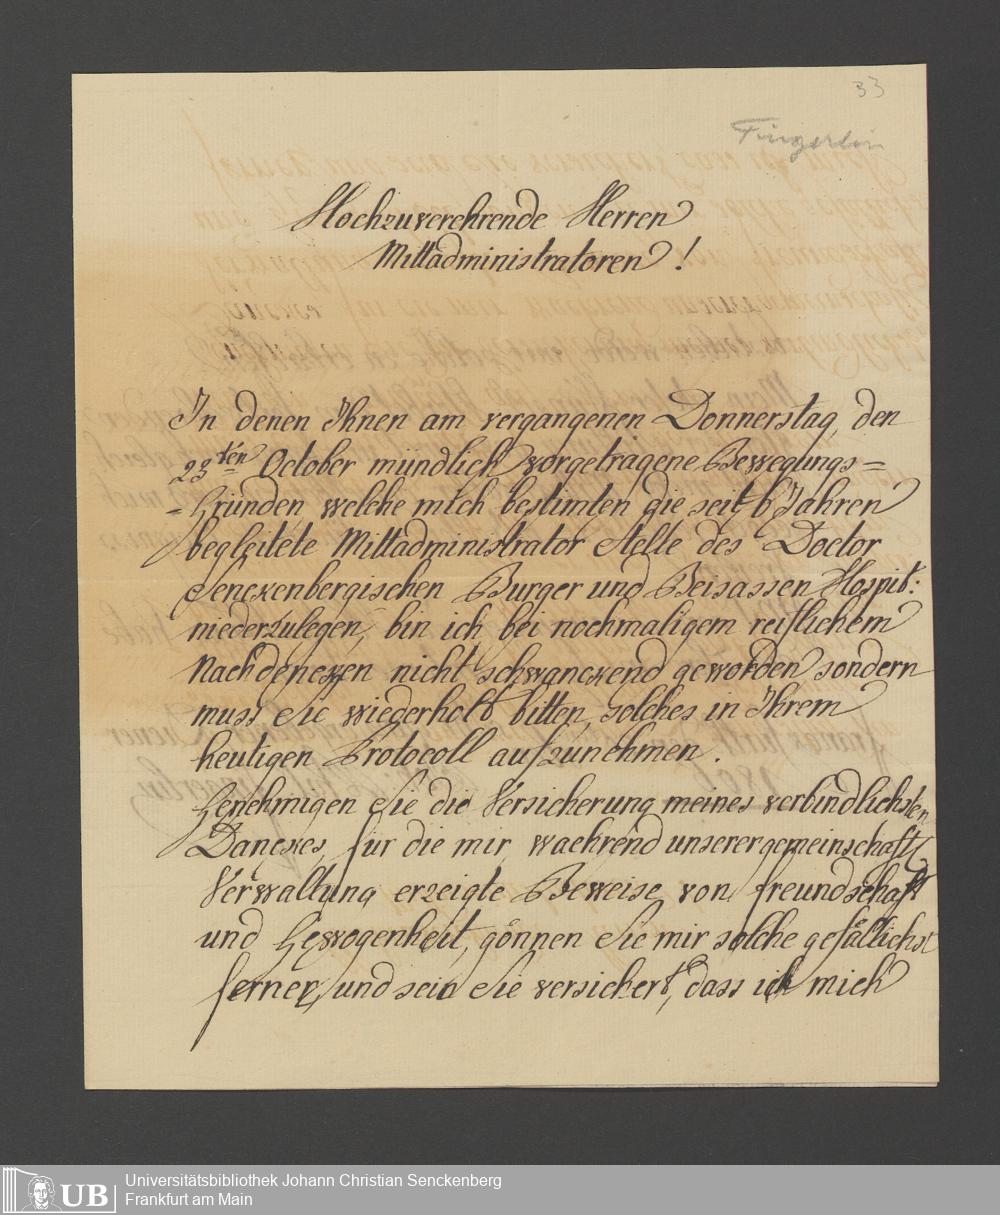 33
Fingerlin
Hochzuverehrende Herren
Mittadministratoren!
In denen Ihnen am vergangenen Donnerstag, den
23ten October mündlich vorgetragene Bewegungs=
=Gründen welche mich bestimten die seit 6 Jahren
begleitete Mittadministrator Stelle des Doctor
Senckenbergischen Burger und Beisassen Hospit:
niederzulegen, bin ich bei nochmaligem reiflichem
Nachdencken nicht schwanckend geworden sondern
muss Sie wiederholt bitten, solches in Ihrem
heutigen Protocoll aufzunehmen.
Genehmigen Sie die Versicherung meines verbindlichsten
Danckes, für die mir waehrend unserer gemeinschaftl
Verwaltung erzeigte Beweise von freundschaft
und Gewogenheit, gönnen Sie mir solche gefällichst
ferner, und sein Sie versichert, dass ich mich
UB
Universitätsbibliothek Johann Christian Senckenberg
Frankfurt am Main